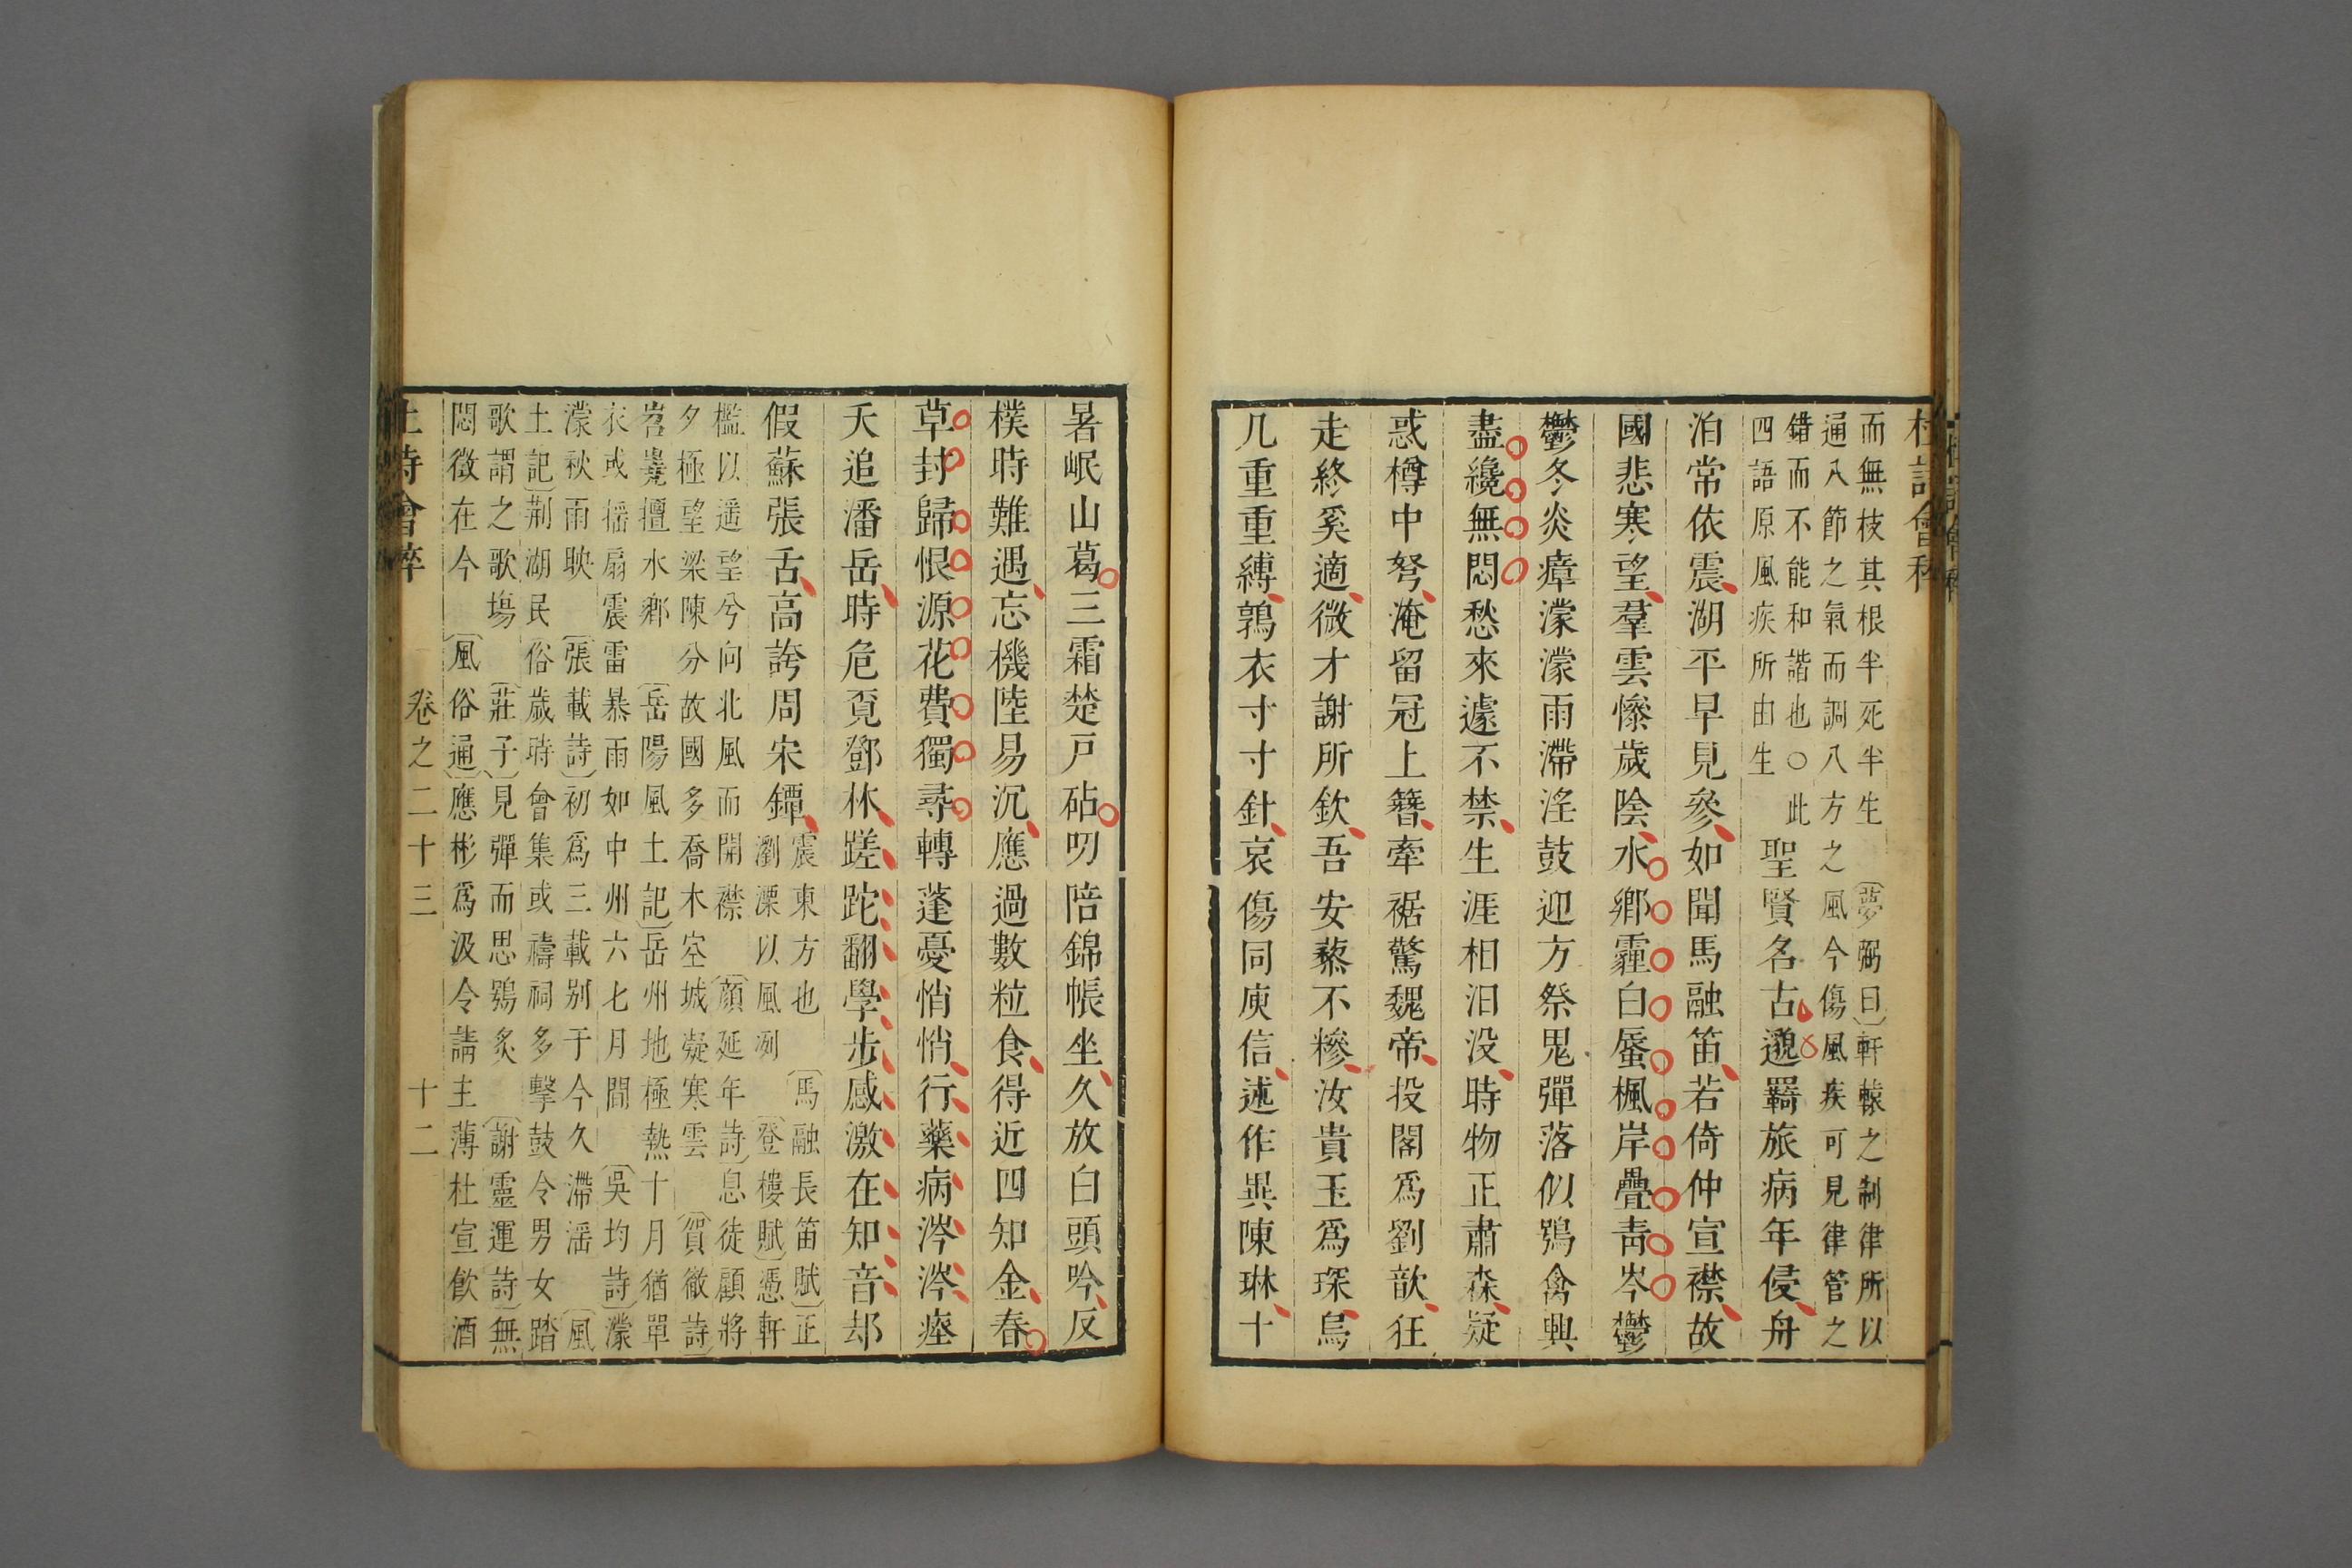 而無枝其根半死半生〔夢弼曰〕軒轅之制律所以
通八節之氣而調八方之風今傷風疾可見律管之
錯而不能和諧也○此
四語原風疾所由生
聖賢名古邈羇旅病年侵舟
泊常依震湖平早見參如聞馬融笛若倚仲宣襟故
國悲寒望羣雲慘歲陰水鄉霾白蜃楓岸疊青岑鬱
鬱冬炎瘴濛濛雨滯淫鼓迎方祭鬼彈落似鴞禽興
盡纔無悶愁來遽不禁生涯相汨没時物正肅森疑
惑樽中弩淹留冠上簪牽裾驚魏帝投閣爲劉歆狂
走終奚適微才謝所欽吾安藜不糝汝貴玉爲琛烏
几重重縛鶉衣寸寸針哀傷同庾信述作異陳琳十
暑岷山葛三霜楚戸砧叨陪錦帳坐久放白頭吟反
樸時難遇忘機陸易沉應過數粒食得近四知金春
草封歸恨源花費獨尋轉蓬憂悄悄行藥病涔涔瘞
夭追潘岳時危覓鄧林蹉跎翻學步感激在知音却
假蘇張舌高誇周宋鐔
震東方也〔馬融長笛賦〕正
瀏溧以風冽〔登樓賦〕憑軒
檻以遥望兮向北風而開襟〔顔延年詩〕息徒顧將
夕極望梁陳分故國多喬木空城凝寒雲〔賀徹詩〕
岧嶤擅水鄉〔岳陽風土記〕岳州地極熱十月猶單
衣或揺扇震雷暴雨如中州六七月間〔吳均詩〕濛
濛秋雨駛〔張載詩〕初爲三載别于今久滯淫〔風
土記〕荆湖民俗歲時會集或禱祠多擊鼓令男女踏
歌謂之歌塲〔莊子〕見彈而思鴞炙〔謝靈運詩〕無
悶徵在今〔風俗通〕應彬爲汲令請主薄杜宣飲酒
卷之二十三
十二